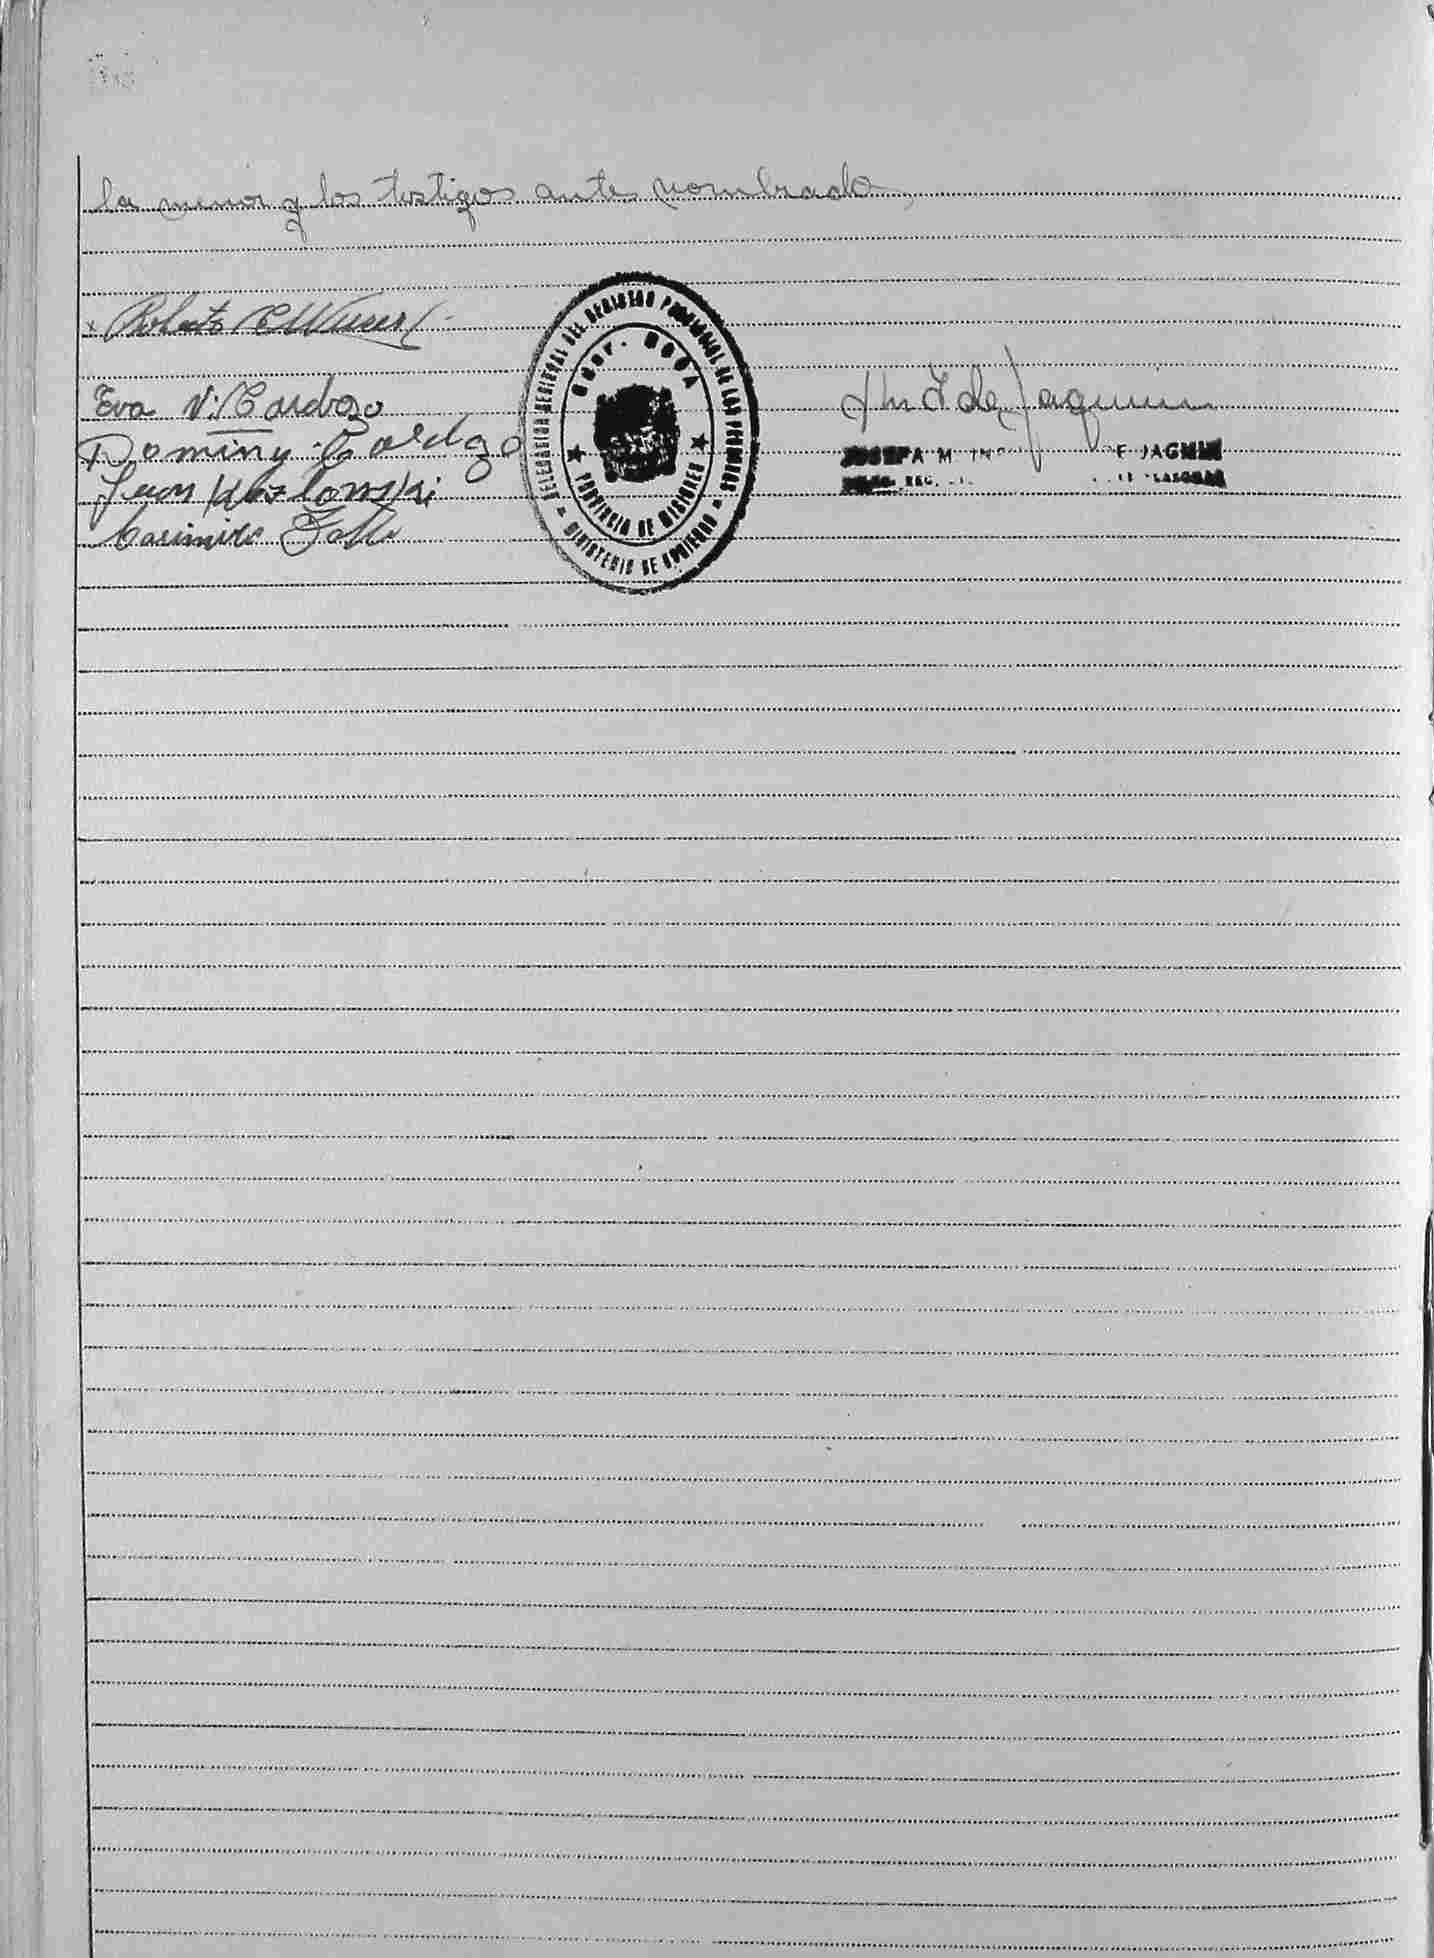 la menor y los testigos antes nombrado
Roberto
Eva V. Cardozo
Doming Cardozo
Juan Kozlowski
Casimiro
DELEGACION REGIONAL DEL REGISTRO PROVINCIAL DE LAS PERSONAS
Gdor. ROCA
PROVINCIA DE MISIONES
MINISTERIO DE GOBIERNO
de Jaquin
JOSEFA M. DE
REG.